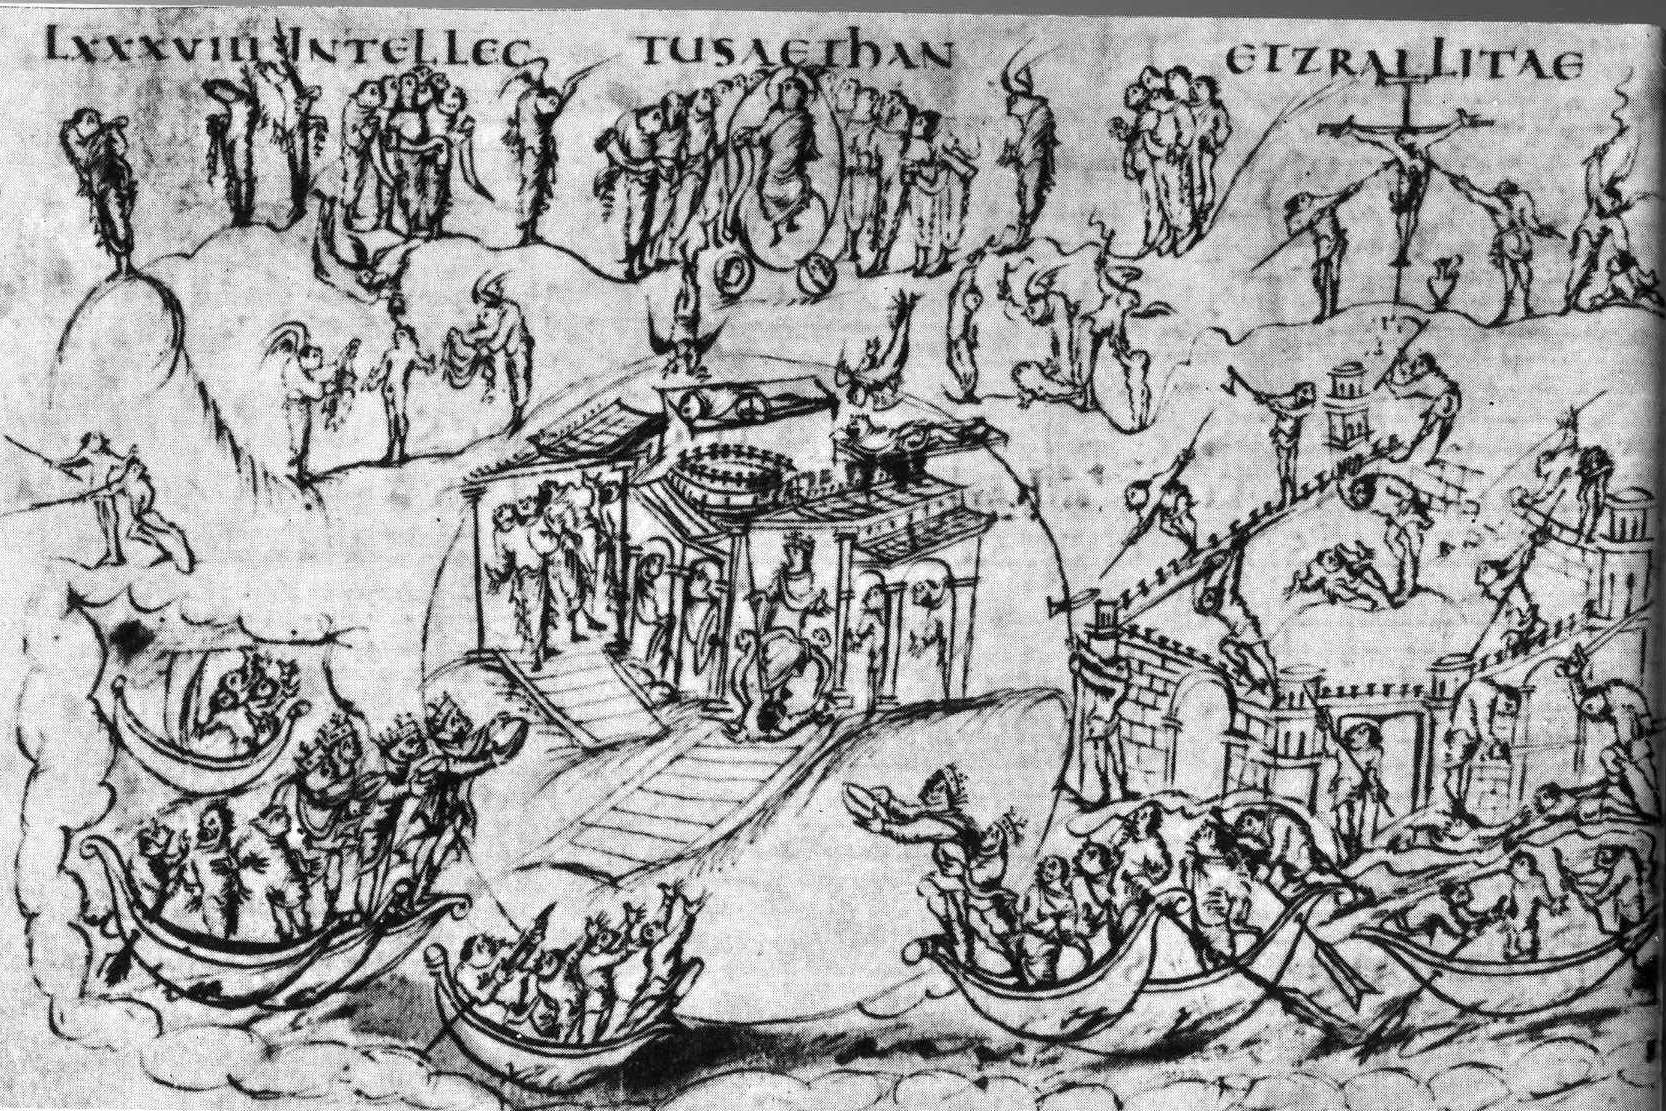 LXXXVIII INTELLEC TUS AETHAN ETZRAILLITAE